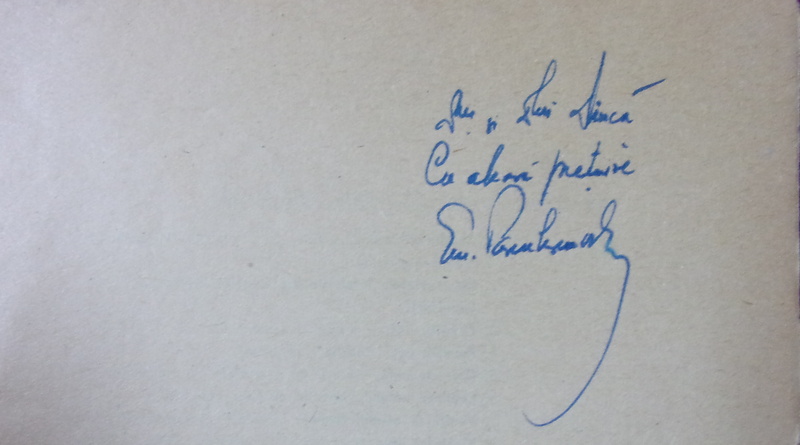 D. și D-lui Dincă
Cu aleasă prețuire
Em.